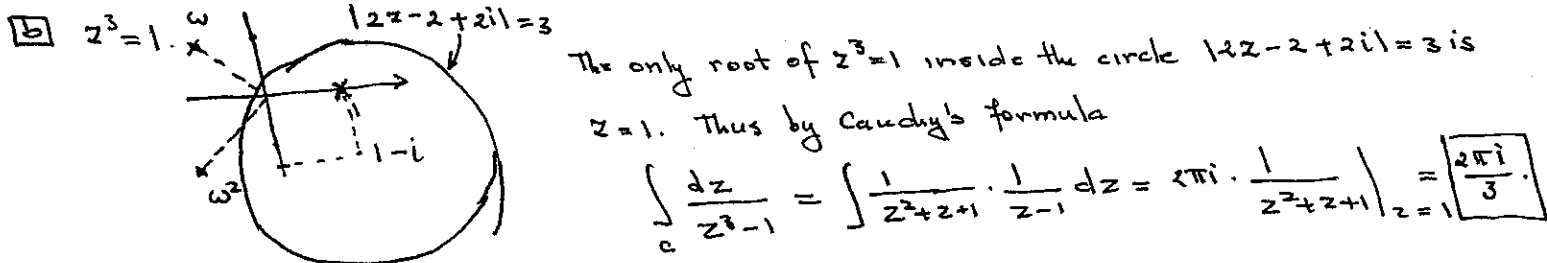 b z³=1. ω |2z-2+2i|=3
The only root of z³=1 inside the circle |2z-2+2i|=3 is
z=1. Thus by Cauchy's formula
1-i
ω²
∫_c dz/(z³-1) = ∫ 1/(z²+z+1) · 1/(z-1) dz = 2πi · 1/(z²+z+1) |_{z=1} = 2πi/3.